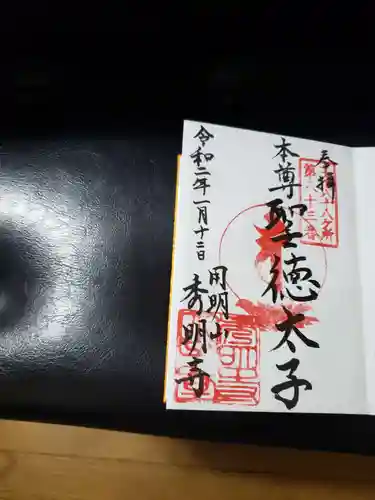 奉拝
本尊聖徳太子
令和二年一月十二日
用明山
秀明寺